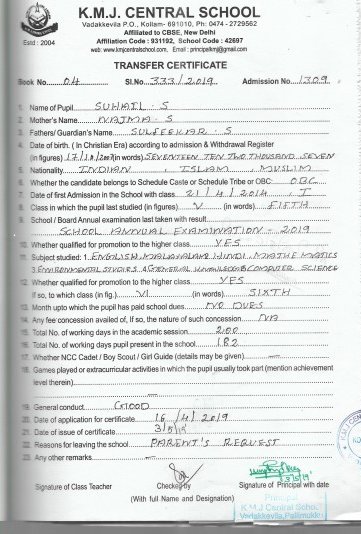 K.M.J. CENTRAL SCHOOL
Vadakkevila P.O., Kollam- 691010, Ph: 0474 - 2729562
Affiliated to CBSE, New Delhi
Affiliation Code : 931192, School Code : 42697
web: www.kmjcentralschool.com, Email : principalkmj@gmail.com
Estd : 2004
TRANSFER CERTIFICATE
Book No. 04 Sl.No. 333/2019 Admission No. 1309
1. Name of Pupil SUHAIL. S
2. Mother's Name NAJMA. S
3. Fathers/Guardian's Name SULFEEKAR. S
4. Date of birth. ( In Christian Era) according to admission & Withdrawal Register
(in figures) 17/10/2007 (in words) SEVENTEEN TEN TWO THOUSAND SEVEN
5. Nationality INDIAN, ISLAM, MUSLIM
6. Whether the candidate belongs to Schedule Caste or Schedule Tribe or OBC OBC
7. Date of first Admission in the School with class 21/4/2014, I
8. Class in which the pupil last studied (in figures) V (in words) FIFTH
9. School / Board Annual examination last taken with result
SCHOOL ANNUAL EXAMINATION - 2019
10. Whether qualified for promotion to the higher class YES
11. Subject studied: 1. ENGLISH, MALAYALAM, HINDI, MATHEMATICS
3. ENVIRONMENTAL STUDIES 4. GENERAL KNOWLEDGE COMPUTER SCIENCE
12. Whether qualified for promotion to the higher class YES
If so, to which class (in fig.) VI (in words) SIXTH
13. Month upto which the pupil has paid school dues NO DUES
14. Any fee concession availed of, If so, the nature of such concession NA
15. Total No. of working days in the academic session 200
16. Total No. of working days pupil present in the school 182
17. Whether NCC Cadet / Boy Scout / Girl Guide (details may be given)
18. Games played or extracurricular activities in which the pupil usually took part (mention achievement
level therein)
19. General conduct GOOD
20. Date of application for certificate 16/4/2019
21. Date of issue of certificate 3/5/19
22. Reasons for leaving the school PARENT'S REQUEST
23. Any other remarks
Signature of Class Teacher Checked by Signature of Principal with date
3/5/19
(With full Name and Designation)
Principal
K.M.J Central School
Vadakkevila, Pallimukku